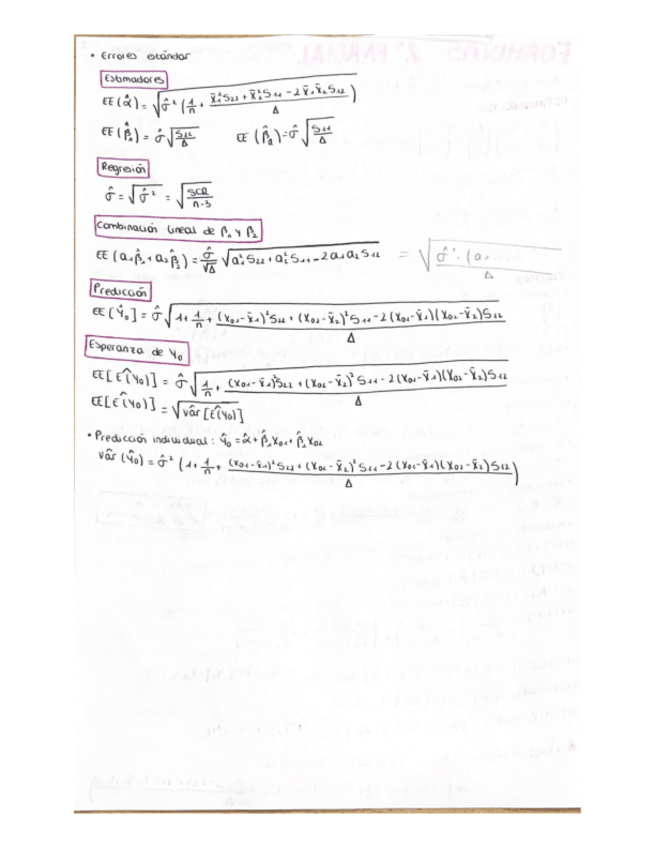 • Errores estándar
Estimadores
EE(α̂) = √(σ̂² (1/n + (x̄₁²S₂₂ + x̄₂²S₁₁ − 2x̄₁x̄₂S₁₂)/Δ))
EE(β̂₁) = σ̂ √(S₂₂/Δ)   EE(β̂₂) = σ̂ √(S₁₁/Δ)
Regresión
σ̂ = √σ̂² = √(SCR/(n-3))
Combinación lineal de β₁ y β₂
EE(a₁β̂₁ + a₂β̂₂) = σ̂/√Δ √(a₁²S₂₂ + a₂²S₁₁ − 2a₁a₂S₁₂) = √(σ̂² · (a₁
Predicción
EE[Ŷ₀] = σ̂ √(1 + 1/n + ((x₀₁−x̄₁)²S₂₂ + (x₀₂−x̄₂)²S₁₁ − 2(x₀₁−x̄₁)(x₀₂−x̄₂)S₁₂)/Δ)
Esperanza de Y₀
EE[Ê(Y₀)] = σ̂ √(1/n + ((x₀₁−x̄₁)²S₂₂ + (x₀₂−x̄₂)²S₁₁ − 2(x₀₁−x̄₁)(x₀₂−x̄₂)S₁₂)/Δ)
EE[Ê(Y₀)] = √(vâr[Ê(Y₀)])
• Predicción individual: ŷ₀ = α̂ + β̂₁x₀₁ + β̂₂x₀₂
vâr(ŷ₀) = σ̂² (1 + 1/n + ((x₀₁−x̄₁)²S₂₂ + (x₀₂−x̄₂)²S₁₁ − 2(x₀₁−x̄₁)(x₀₂−x̄₂)S₁₂)/Δ)